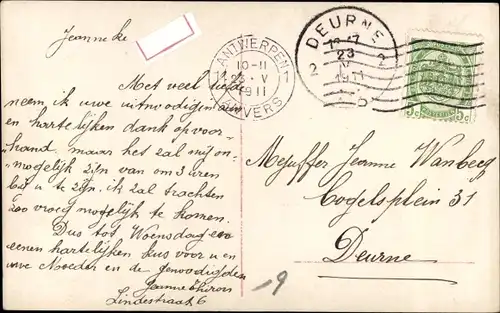 Jeanneke
Met veel liefde
neem ik uwe uitnoodiging aan
en hartelijken dank op voor-
hand, maar het zal mij on-
mogelijk zijn van om 3 uren
bij u te zijn, ik zal trachten
zoo vroeg mogelijk te komen.
Dus tot Woensdag
eenen hartelijken kus voor u en
uwe Moeder en de genoodigden
Jeanne
Lindestraat 6
ANTWERPEN 1
10-11
23-V
1911
ANVERS
DEURNE
23
V
1911
2 2
5c 5c
Mejuffer Jeanne Wanbecq
Cogelsplein 31
Deurne
9